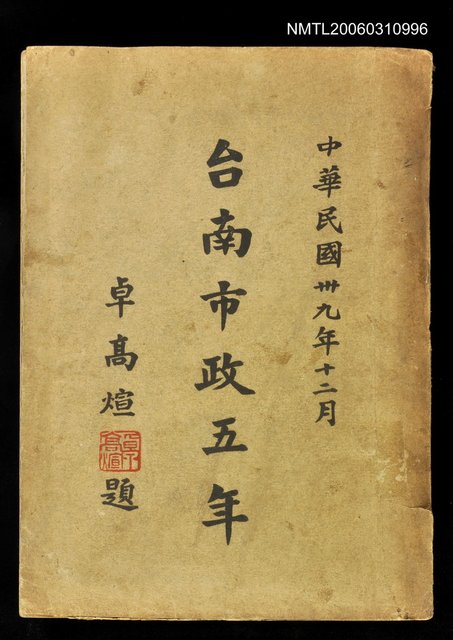 NMTL20060310996
中華民國卅九年十二月
台南市政五年
卓高煊
卓高煊
題